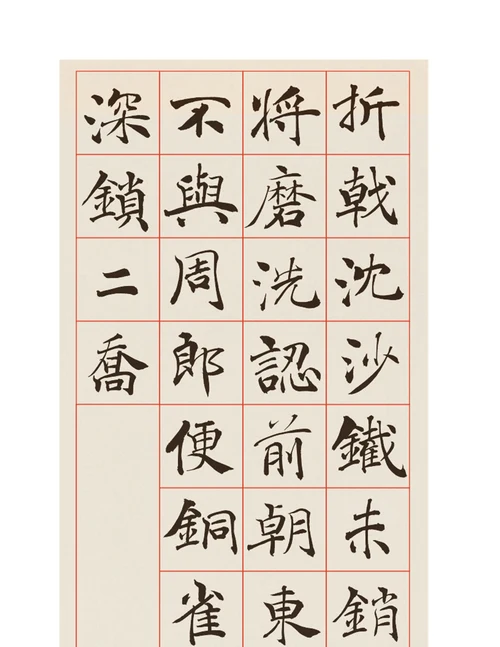 折戟沈沙鐵未銷
將磨洗認前朝東
不與周郎便銅雀
深鎖二喬